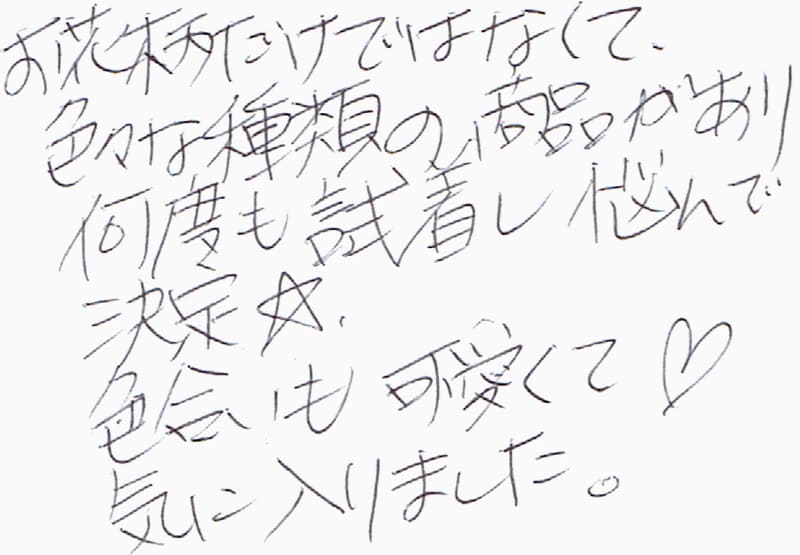 お花柄だけではなくて、
色々な種類の商品があり
何度も試着し悩んで
決定☆、
色合いも可愛くて♡
気に入りました。